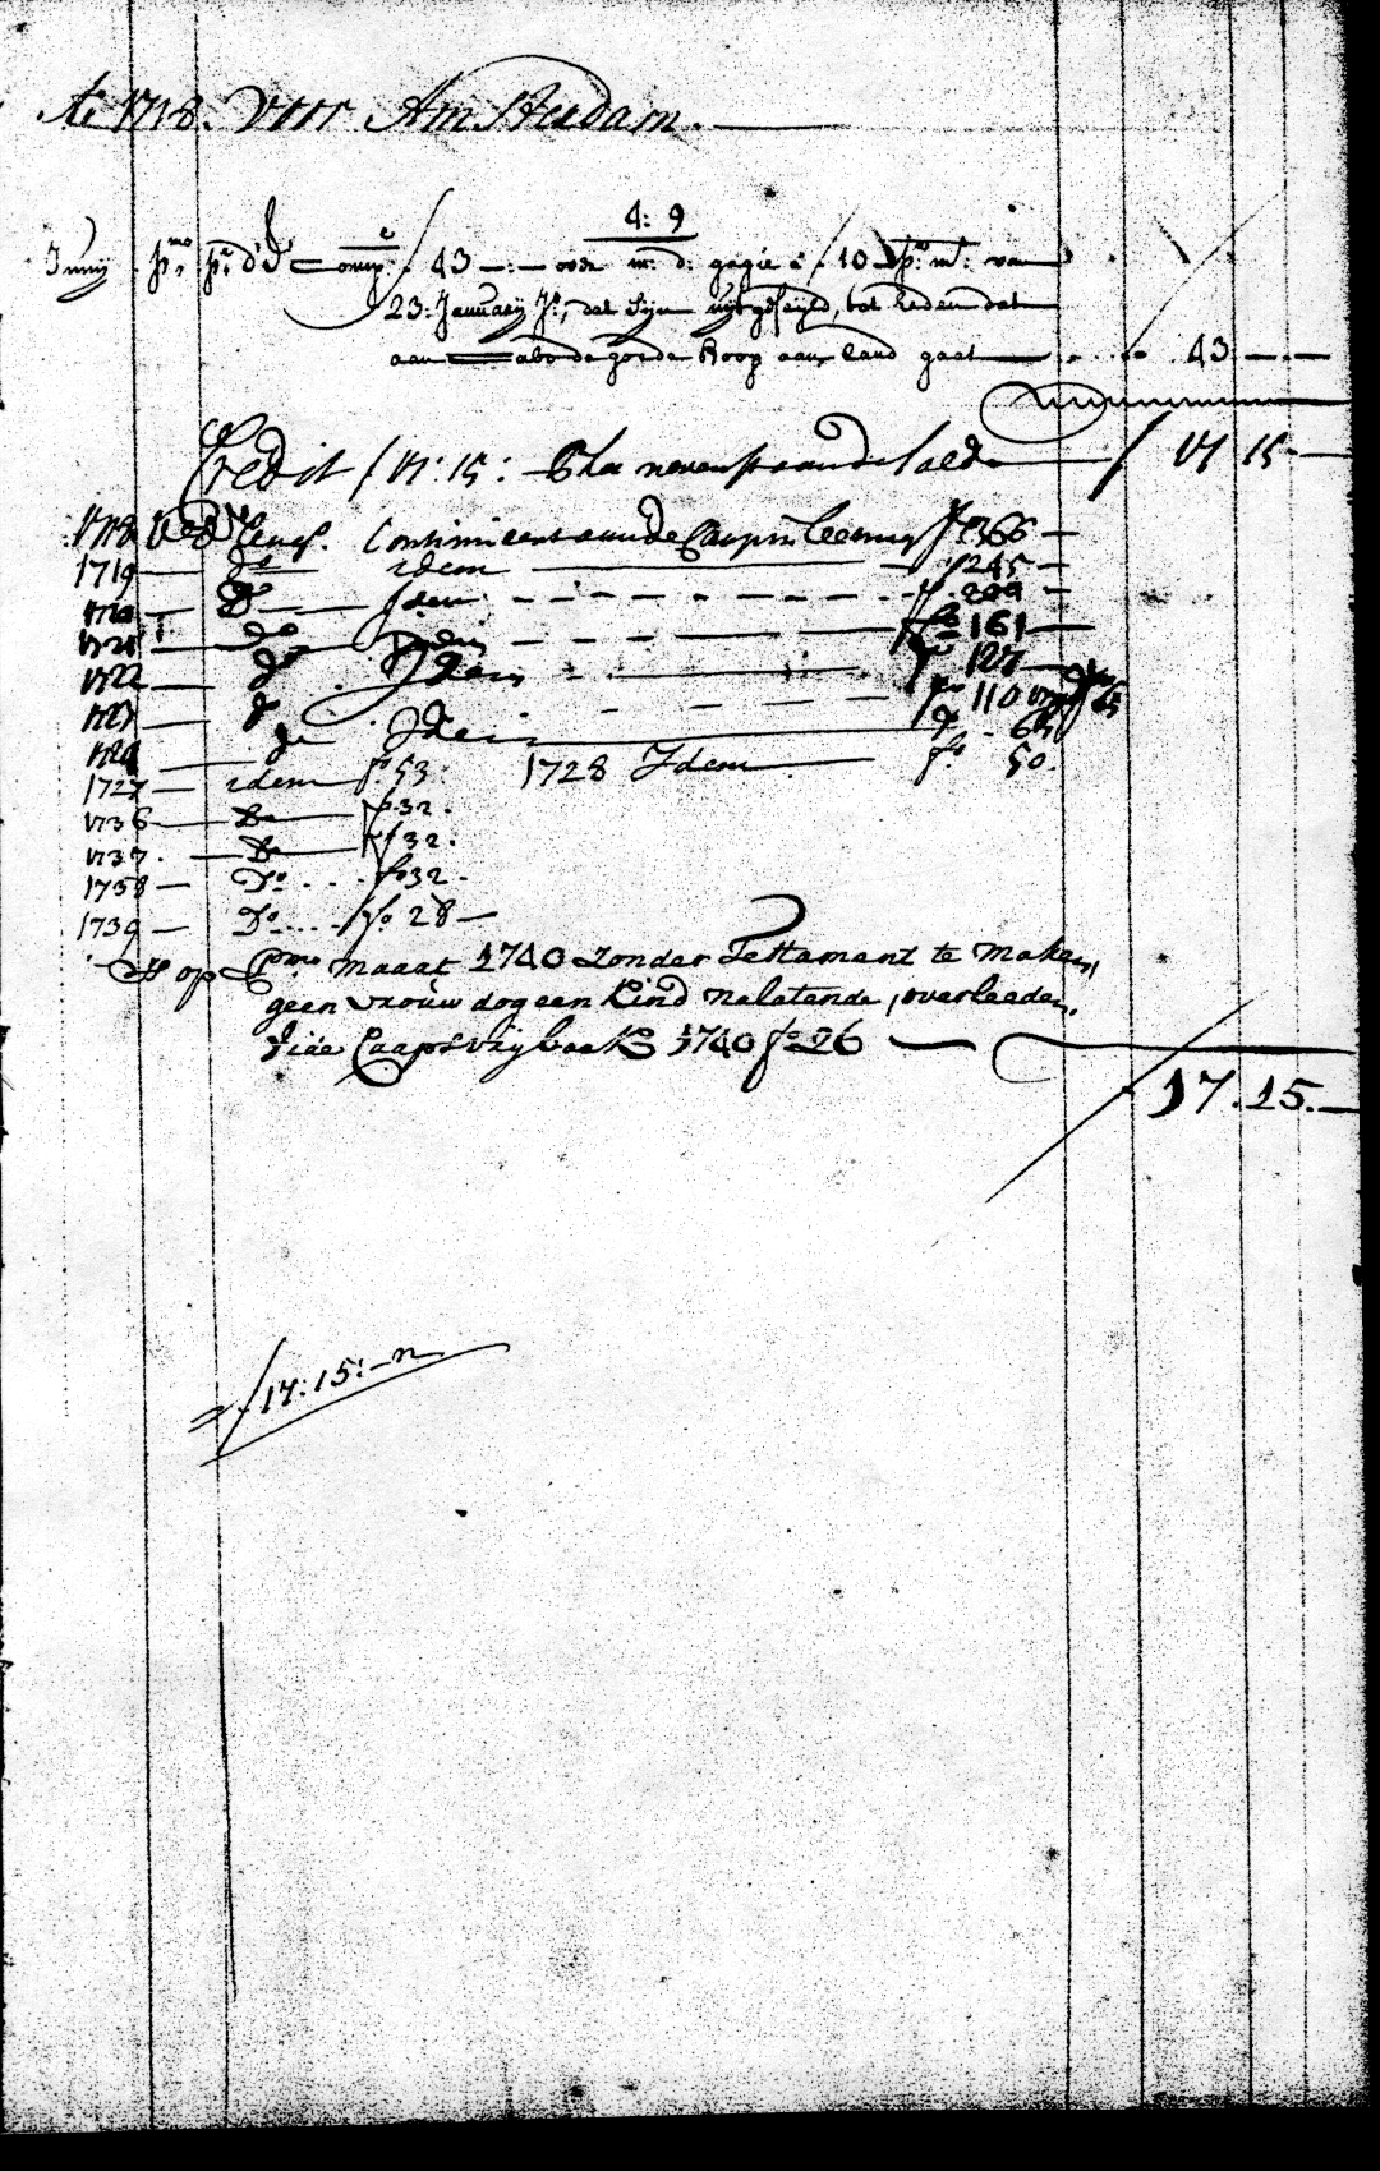 A:o 1718. Voor Amsterdam.
4: 9
Junij p:mo p:r d'E Comp:e ƒ 43 —:— over m: d: gagie à ƒ 10 p:r m:t van
23: Januarij J:o, dat Sijn uijtgeseijld, tot heden dat
aan Cabo de goede Hoop aan land gaat ƒ 43 — —
Credit ƒ 17: 15: — nevenstaande Saldo ƒ 17 15 —
1718 Continueert aan de Caap in Leening f:o 366 —
1719 — d:o idem f:o 245 —
— D:o Idem f:o 209 —
1721 — d:o Idem f:o 161 —
1722 — d:o Idem f:o 127 —
1723 — d:o f:o 110
1724 — d:o Idem f:o
1727 — idem f:o 53: 1728 Idem f:o 50.
1736 — D:o f:o 32.
1737. — D:o f:o 32.
1738 — D:o ... f:o 32 -
1739 — D:o .... f:o 28 —
Is op P:mo maart 1740 zonder Testament te maken,
geen vrouw dog een kind nalatende, overleeden.
Vide Caaps vrijboek 1740 f:o 26
ƒ 17. 15. —
ƒ 17: 15: —